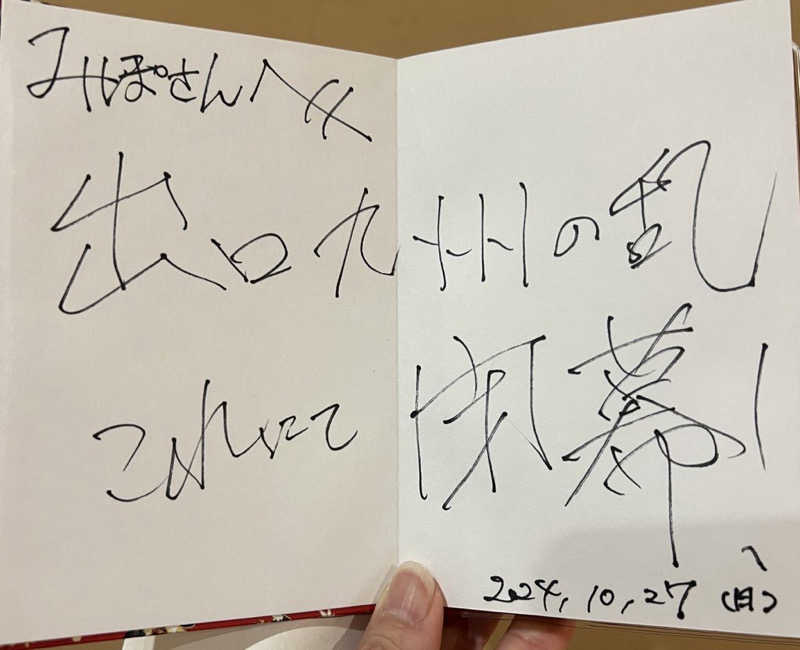 みぽさんへ
出口九州の乱
これにて閉幕!
2024,10,27(日)